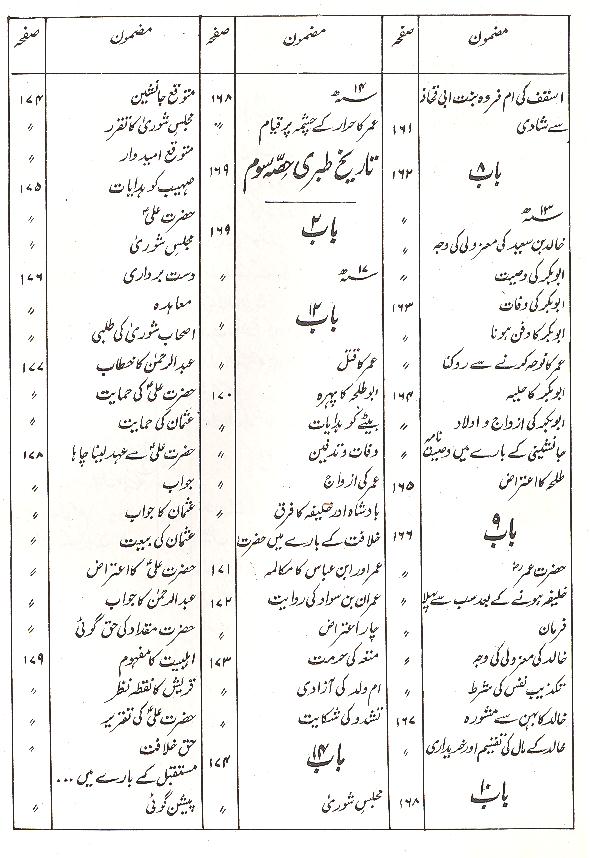 مضمون	صفحہ
اسقف کی ام فروہ بنت ابی قحافہ
سے شادی	۱۶۱
باب ۸	۱۶۲
۱۳ سنہ ھ	〃
خالد بن سعید کی معزولی کی وجہ
ابوبکر کی وصیت	〃
ابوبکر کی وفات	۱۶۳
ابوبکر کا دفن ہونا	〃
عمر کا نوحہ کرنے سے روکنا	〃
ابوبکر کا حلیہ	۱۶۴
ابوبکر کی ازواج و اولاد	〃
جانشینی کے بارے میں وصیت نامہ	〃
طلحہ کا اعتراض	۱۶۵
باب ۹	۱۶۶
حضرت عمرؓ	〃
خلیفہ ہونے کے بعد سب سے پہلا	〃
فرمان	〃
خالد کی معزولی کی وجہ	〃
تکذیب نفس کی شرط	〃
خالد کا بہن سے مشورہ	۱۶۷
خالد کے مال کی تقسیم اور خریداری	〃
باب ۱۰	۱۶۸
مضمون	صفحہ
۱۴ سنہ ھ	۱۶۸
عمر کا حرار کے چشمہ پر قیام	〃
تاریخ طبری حصّہ سوم	۱۶۹
باب ۲	۱۶۹
۱۷ سنہ ھ	〃
باب ۱۲	〃
عمر کا قتل	〃
ابوطلحہ کا پہرہ	۱۷۰
بیٹے کو ہدایات	〃
وفات و تدفین	〃
عمر کی ازواج	〃
بادشاہ اور خلیفہ کا فرق	〃
خلافت کے بارے میں حضرت	〃
عمر اور ابن عباس کا مکالمہ	۱۷۱
عمران بن سواد کی روایت	۱۷۲
چار اعتراض	〃
متعہ کی حرمت	۱۷۳
ام ولد کی آزادی	〃
تشدد کی شکایت	〃
باب ۱۴	۱۷۴
مجلس شوریٰ	〃
مضمون	صفحہ
متوقع جانشین	۱۷۴
مجلس شوریٰ کا تقرر	〃
متوقع امیدوار	〃
صہیب کو ہدایات	۱۷۵
حضرت علیؑ	〃
مجلس شوریٰ	〃
دست برداری	۱۷۶
معاہدہ	〃
اصحاب شوریٰ کی طلبی	〃
عبدالرحمٰن کا خطاب	۱۷۷
حضرت علیؑ کی حمایت	〃
عثمان کی حمایت	〃
حضرت علیؑ سے عہد لینا چاہا	۱۷۸
جواب	〃
عثمان کا جواب	〃
عثمان کی بیعت	〃
حضرت علیؑ کا اعتراض	〃
عبدالرحمٰن کا جواب	〃
حضرت مقداد کی حق گوئی	〃
اہلبیت کا مفہوم	۱۷۹
قریش کا نقطہ نظر	〃
حضرت علیؑ کی تقریر	〃
حق خلافت	〃
مستقبل کے بارے میں ...
پیشن گوئی	〃